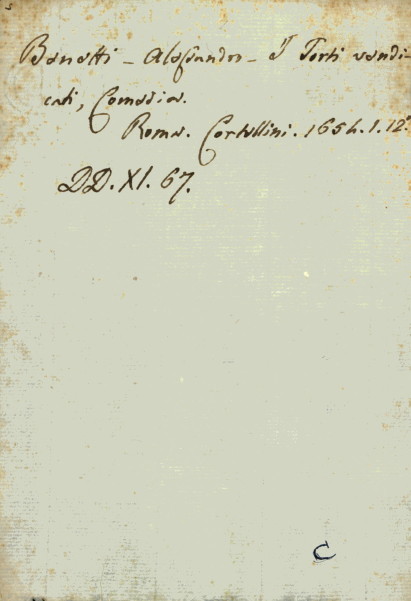 Benetti - Alessandro - I Torti vendi-
cati, Comedia.
Roma. Cortellini. 1654. 1. 12.
DD. XI. 67.
C